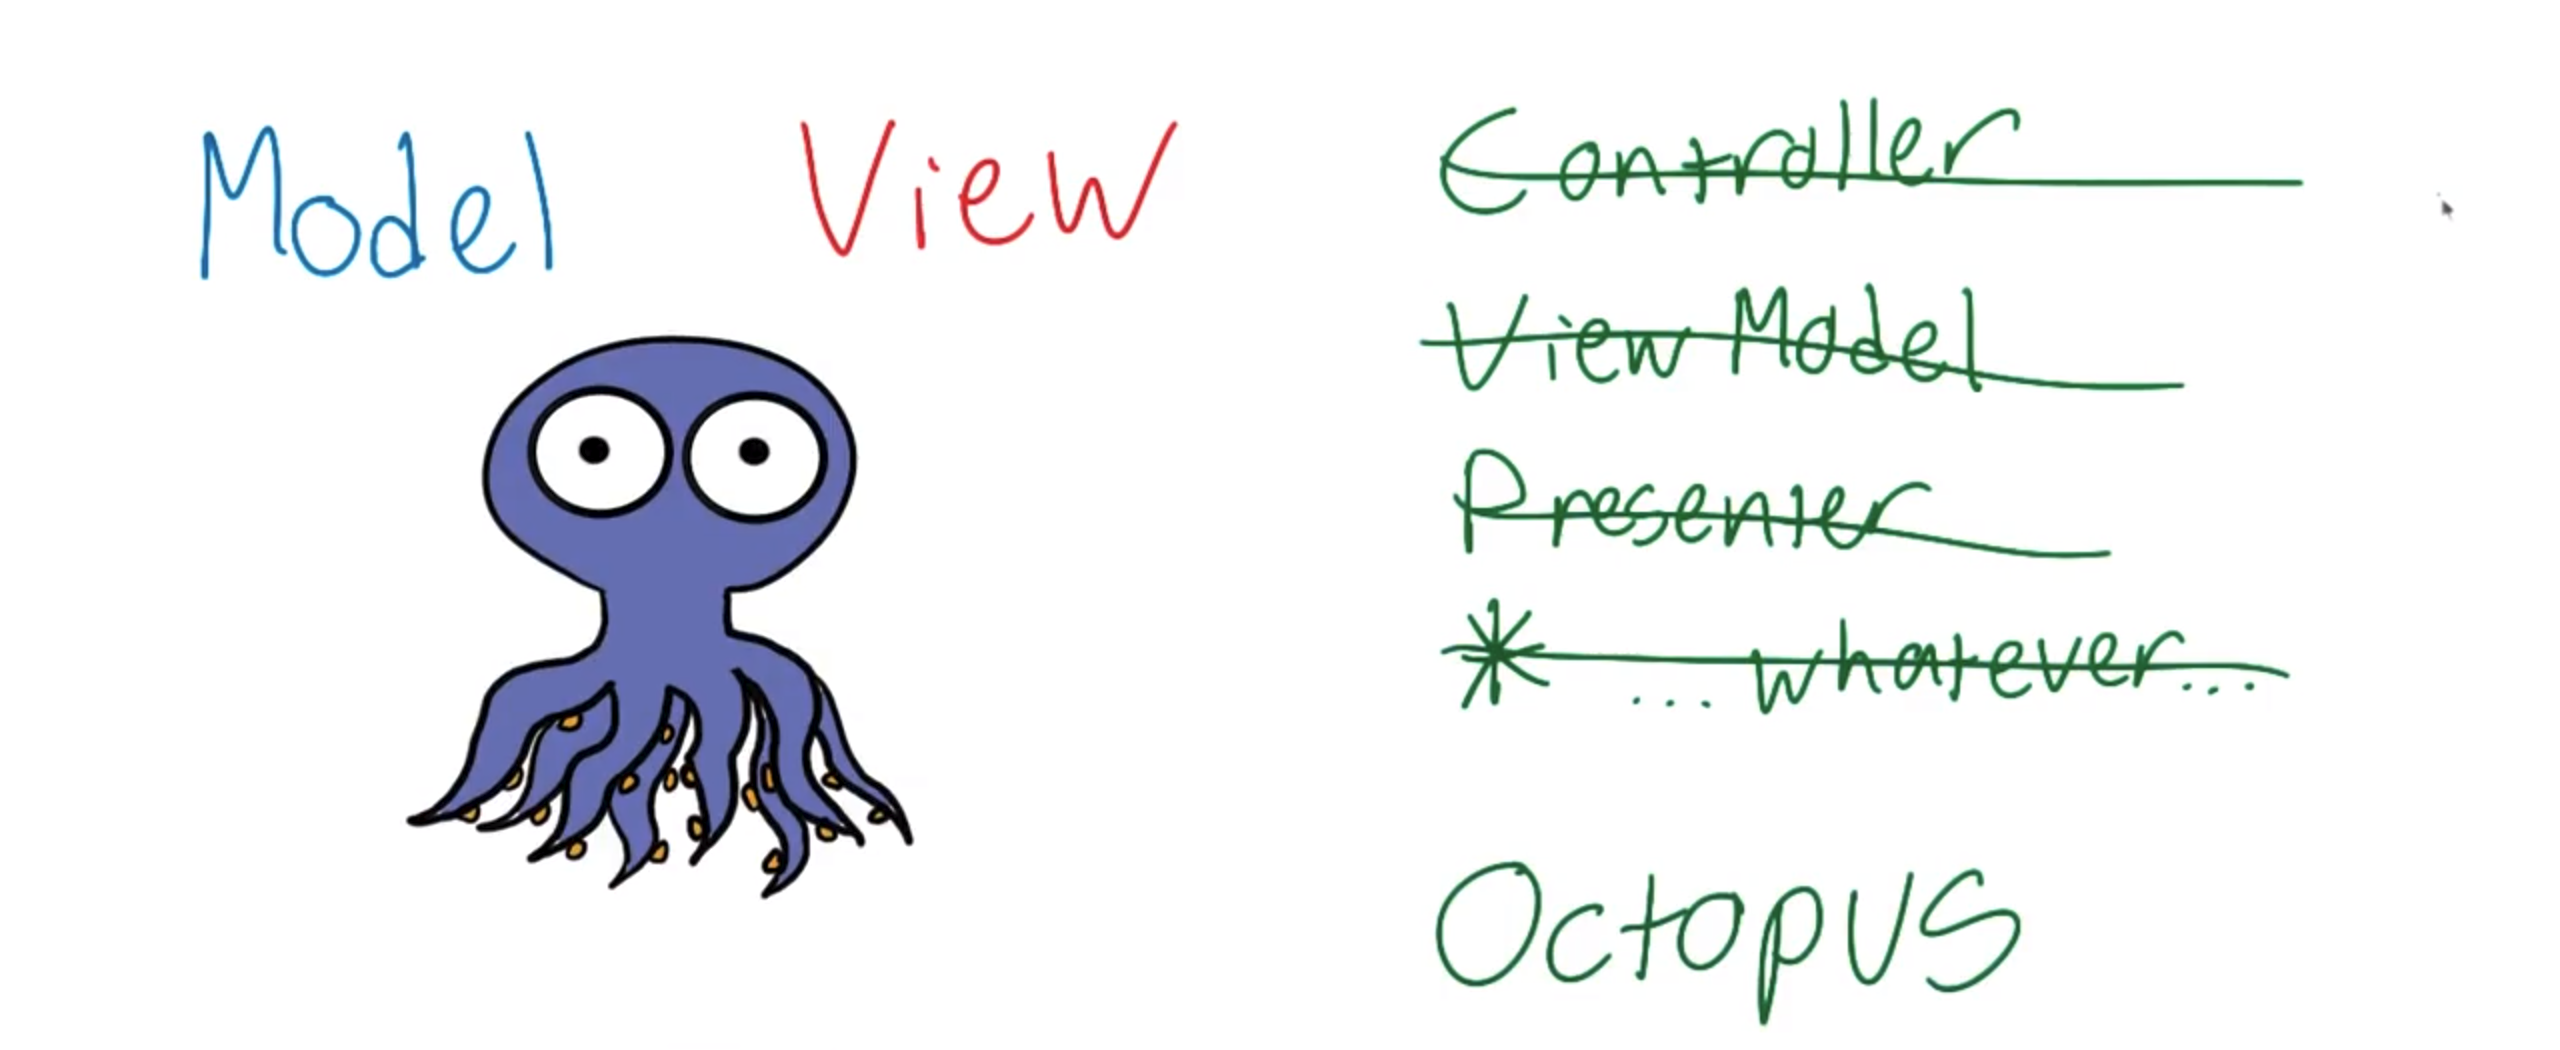 Model View Controller
View Model
Presenter
* ... whatever...
Octopus